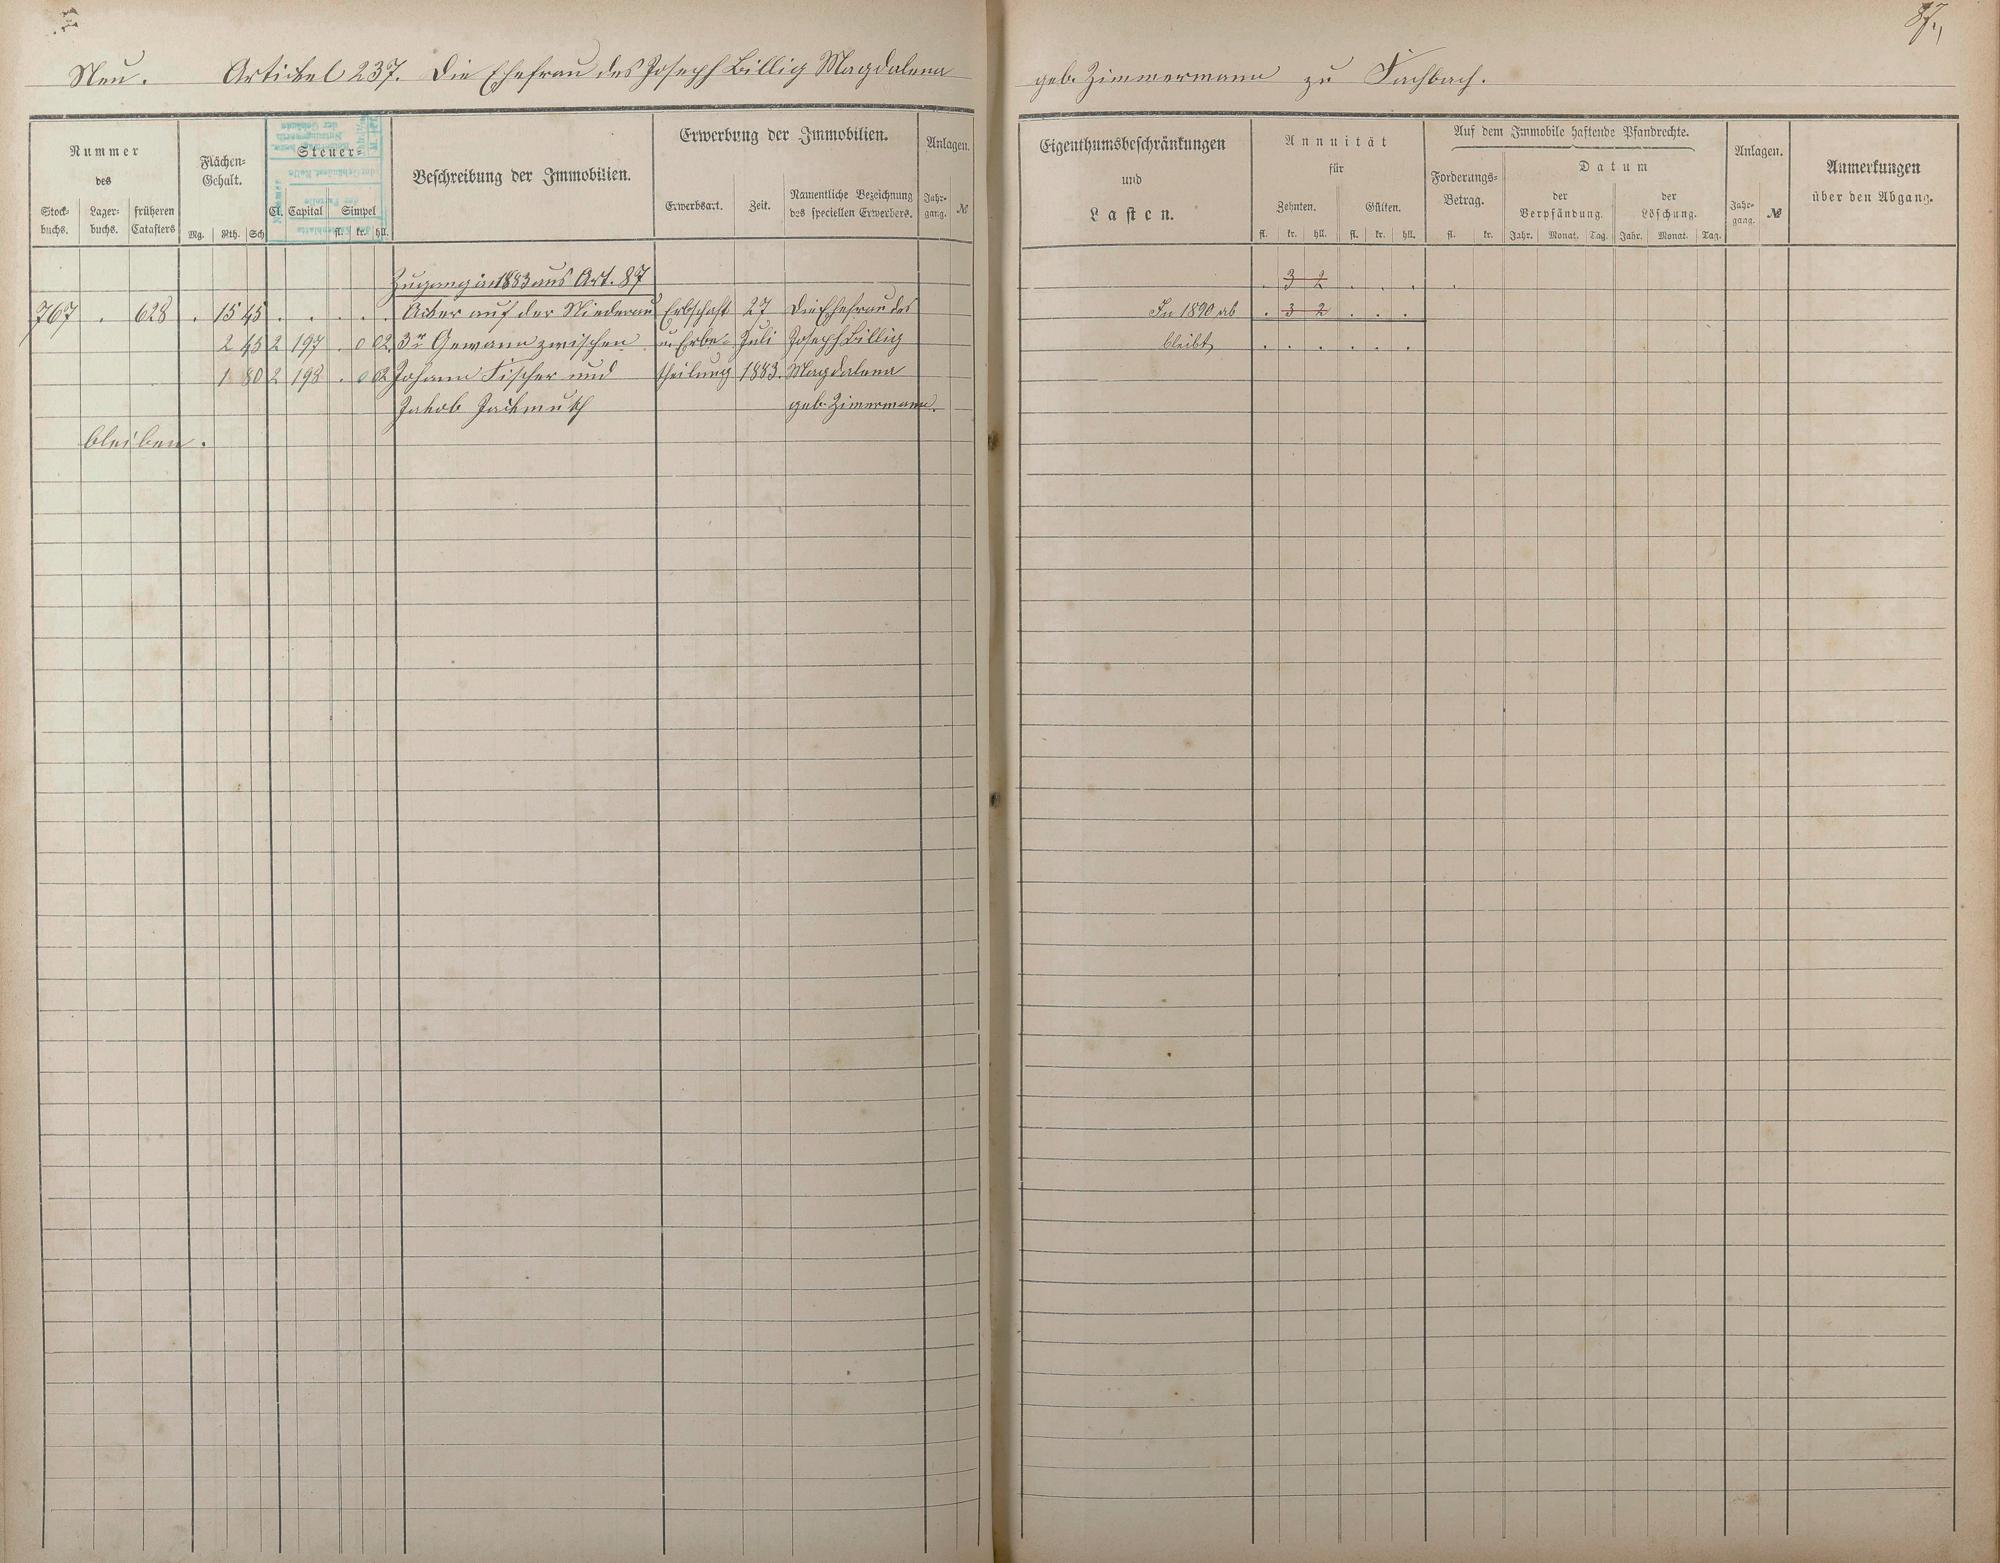 87.
Neu. Artikel 237. Die Ehefrau des Joseph Billig Magdalena geb. Zimmermann zu Fachbach.
Nummer des
Stock-buchs. Lager-buchs. früheren Catasters
Flächen-Gehalt.
Mg. Rth. Sch
Steuer-
Cl. Capital Simpel
fl. kr. hll.
Beschreibung der Immobilien.
Erwerbung der Immobilien.
Erwerbsart. Zeit. Namentliche Bezeichnung des speciellen Erwerbers.
Anlagen.
Jahr-gang. №
Eigenthumsbeschränkungen
und
Lasten.
Annuität
für
Zehnten. Gülten.
fl. kr. hll. fl. kr. hll.
Auf dem Immobile haftende Pfandrechte.
Forderungs-Betrag.
fl. kr.
Datum
der Verpfändung. der Löschung.
Jahr. Monat. Tag. Jahr. Monat. Tag.
Anlagen.
Jahr-gang. №
Anmerkungen
über den Abgang.
Zugang in 1883 aus Art. 87
767 . 628 . 15 45 . . . . . Acker auf der Niederau Erbschaft 27 Die Ehefrau des
2 45 2 197 . 0 02 3r Gewann zwischen u. Erbe- Juli Joseph Billig
1 80 2 198 . 0 02 Johann Fischer und theilung 1883. Magdalena
Jakob Jachmuth geb. Zimermann.
bleiben.
. 3 2 . . . .
In 1890 ab . 3 2 . . .
bleibt . . . . . .